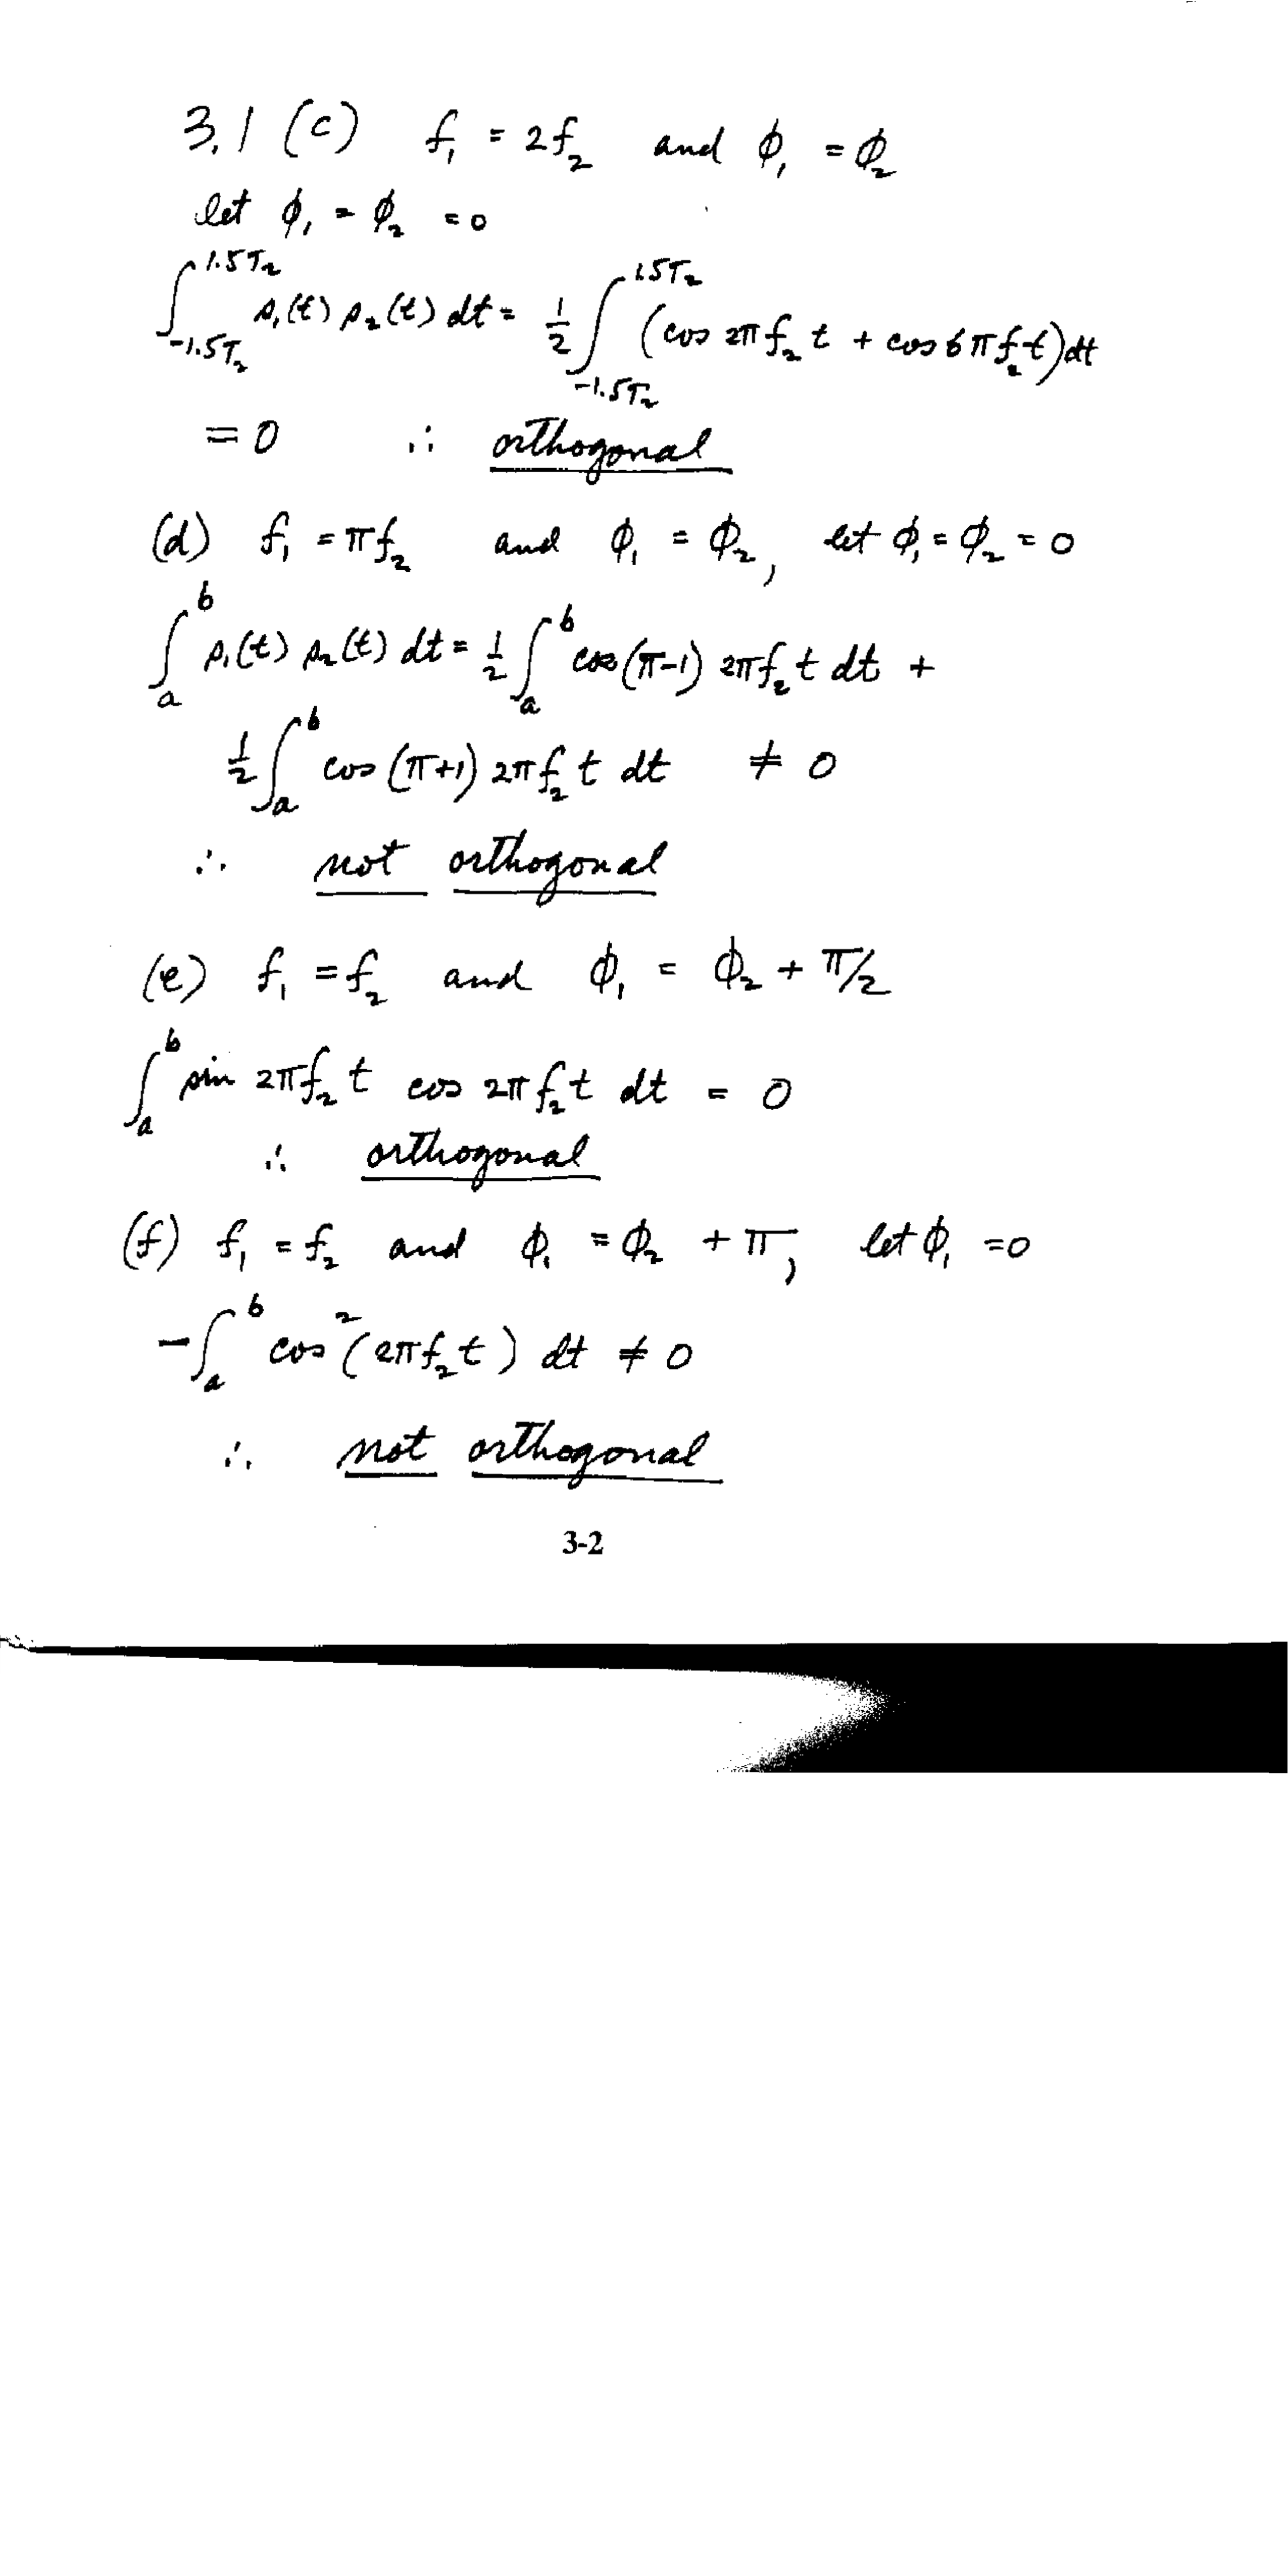 3.1 (c) f₁ = 2f₂ and ϕ₁ = ϕ₂
let ϕ₁ = ϕ₂ = 0
∫_{-1.5T₂}^{1.5T₂} s₁(t) s₂(t) dt = 1/2 ∫_{-1.5T₂}^{1.5T₂} (cos 2πf₂t + cos 6πf₂t) dt
= 0 ∴ orthogonal
(d) f₁ = πf₂ and ϕ₁ = ϕ₂, let ϕ₁ = ϕ₂ = 0
∫_a^b s₁(t) s₂(t) dt = 1/2 ∫_a^b cos(π-1) 2πf₂t dt +
1/2 ∫_a^b cos(π+1) 2πf₂t dt ≠ 0
∴ not orthogonal
(e) f₁ = f₂ and ϕ₁ = ϕ₂ + π/2
∫_a^b sin 2πf₂t cos 2πf₂t dt = 0
∴ orthogonal
(f) f₁ = f₂ and ϕ₁ = ϕ₂ + π, let ϕ₁ = 0
-∫_a^b cos²(2πf₂t) dt ≠ 0
∴ not orthogonal
3-2